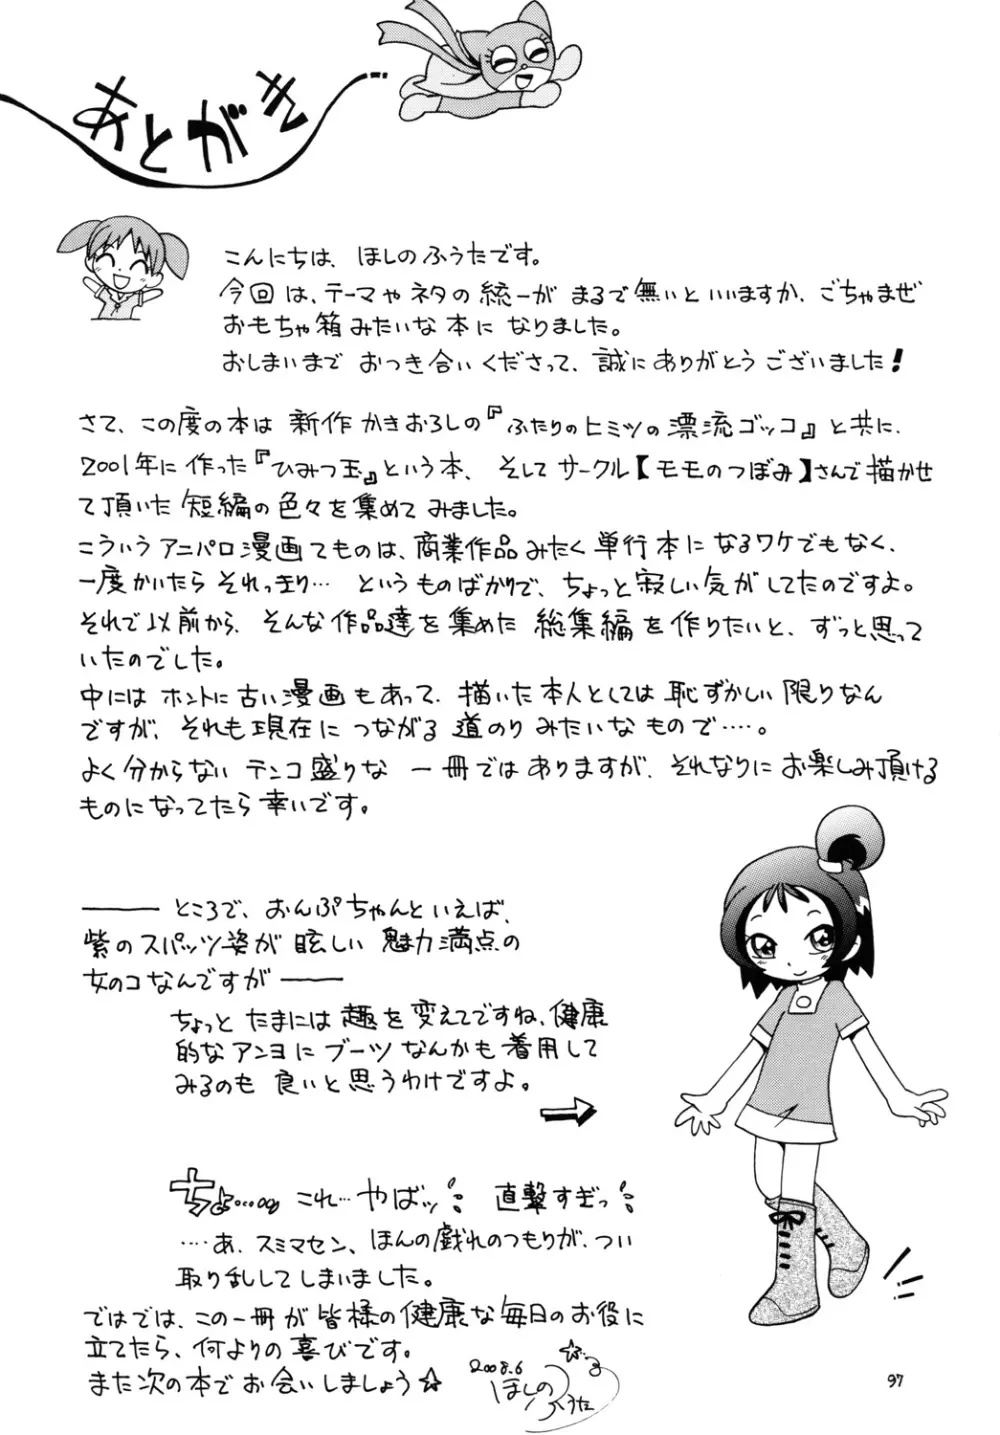 あとがき
こんにちは、ほしのふうたです。
今回は、テーマやネタの統一がまるで無いといいますか、ごちゃまぜ
おもちゃ箱みたいな本になりました。
おしまいまでおつき合いくださって、誠にありがとうございました!
さて、この度の本は新作かきおろしの『ふたりのヒミツの漂流ゴッコ』と共に、
2001年に作った『ひみつ玉』という本、そしてサークル【モモのつぼみ】さんで描かせ
て頂いた短編の色々を集めてみました。
こういうアニパロ漫画てものは、商業作品みたく単行本になるワケでもなく、
一度かいたらそれっきり…というものばかりで、ちょっと寂しい気がしてたのですよ。
それで以前から、そんな作品達を集めた総集編を作りたいと、ずっと思って
いたのでした。
中にはホントに古い漫画もあって、描いた本人としては恥ずかしい限りなん
ですが、それも現在につながる道のりみたいなもので……。
よく分からないテンコ盛りな一冊ではありますが、それなりにお楽しみ頂ける
ものになってたら幸いです。
――ところで、おんぷちゃんといえば、
紫のスパッツ姿が眩しい魅力満点の
女のコなんですが――
ちょっとたまには趣を変えてですね、健康
的なアンヨにブーツなんかも着用して
みるのも良いと思うわけですよ。
ちょ…… これ…やばッ!! 直撃すぎっ!!
……あ、スミマセン、ほんの戯れのつもりが、つい
取り乱してしまいました。
ではでは、この一冊が皆様の健康な毎日のお役に
立てたら、何よりの喜びです。
また次の本でお会いしましょう☆
2008.6
ほしの
ふうた
97